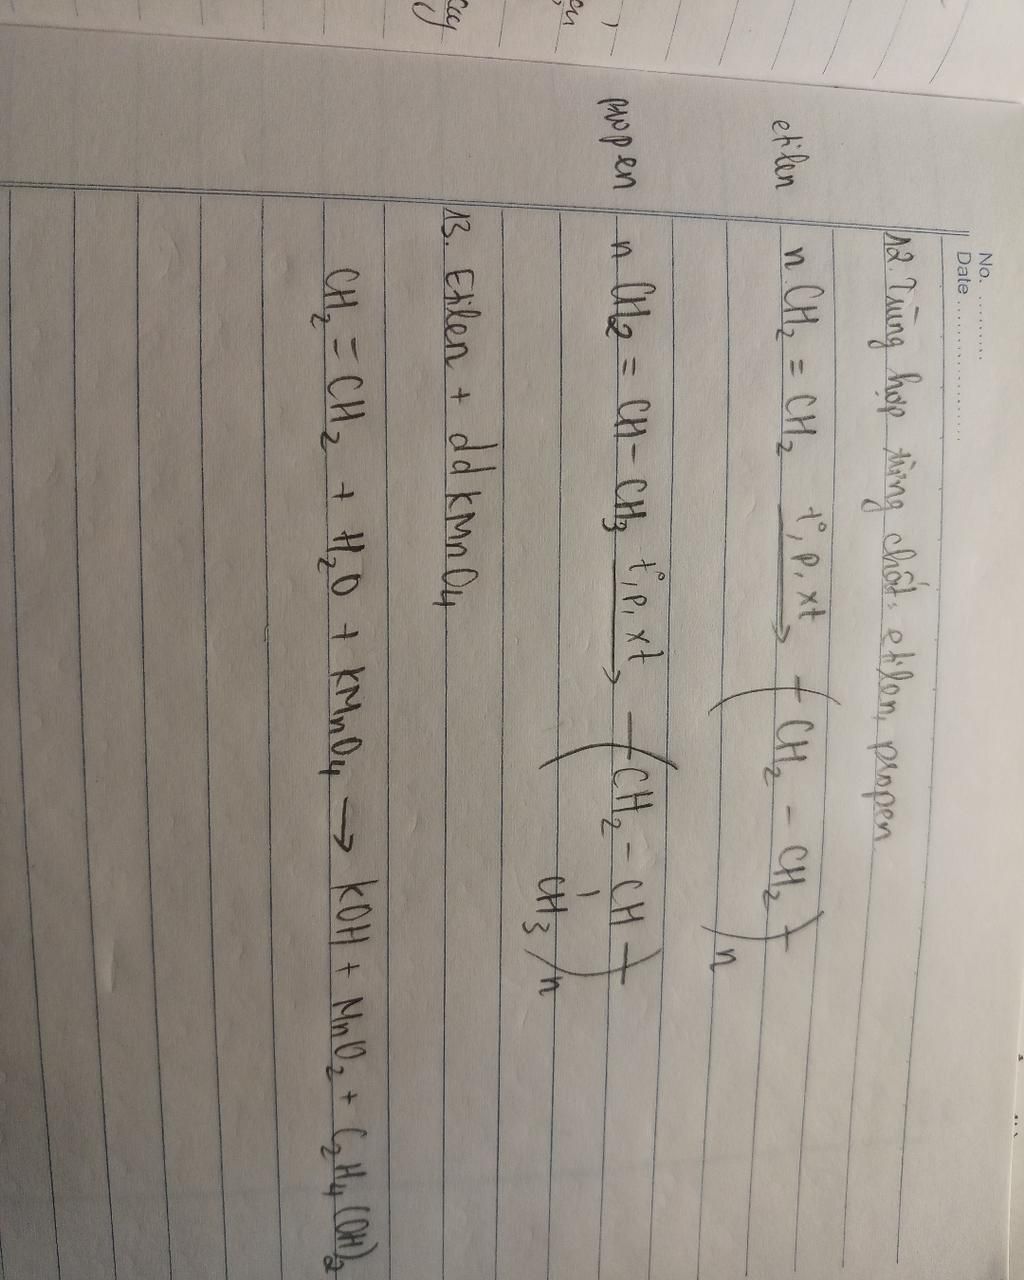 No. .........
Date .................
12. Trùng hợp từng chất: etilen, propen
etilen nCH2 = CH2 t°, p, xt → -(CH2 - CH2)-n
propen nCH2 = CH - CH3 t°, p, xt → -(CH2 - CH)-
CH3 n
13. Etilen + dd kMnO4
CH2 = CH2 + H2O + kMnO4 → kOH + MnO2 + C2H4(OH)2